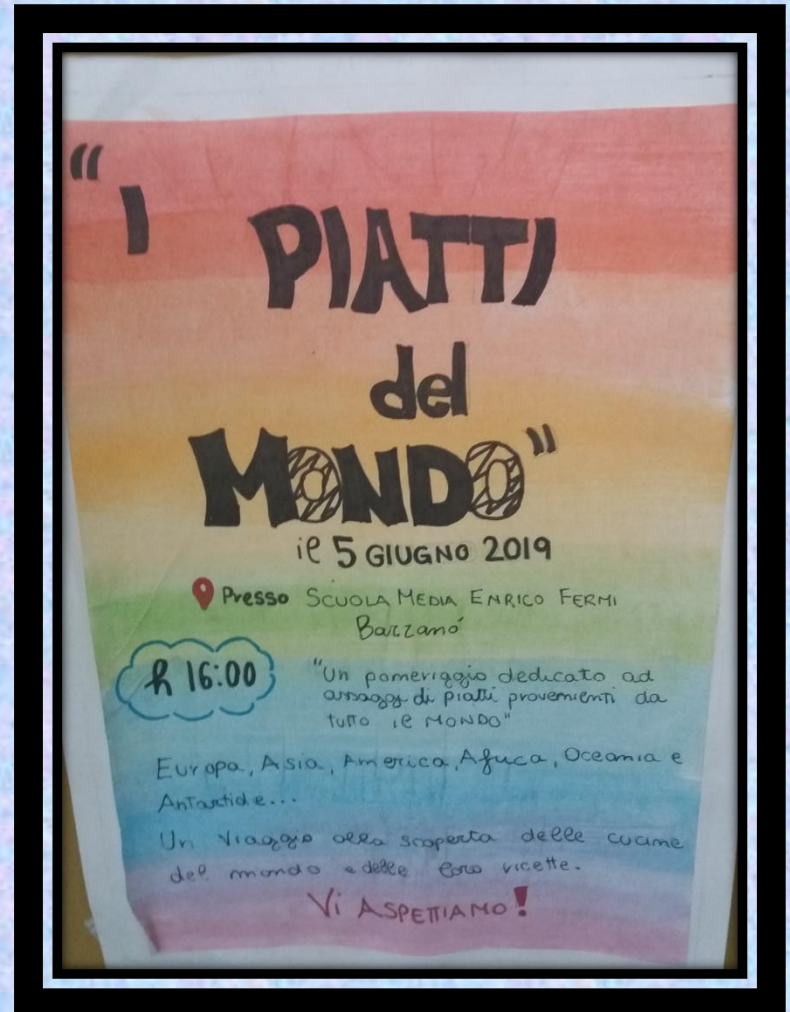 "I PIATTI
del
MONDO"
il 5 GIUGNO 2019
Presso SCUOLA MEDIA ENRICO FERMI
Barzanó
h 16:00
"Un pomeriggio dedicato ad
assaggi di piatti provenienti da
tutto il MONDO"
Europa, Asia, America, Africa, Oceania e
Antartide...
Un viaggio alla scoperta delle cucine
del mondo e delle loro ricette.
Vi ASPETTIAMO!